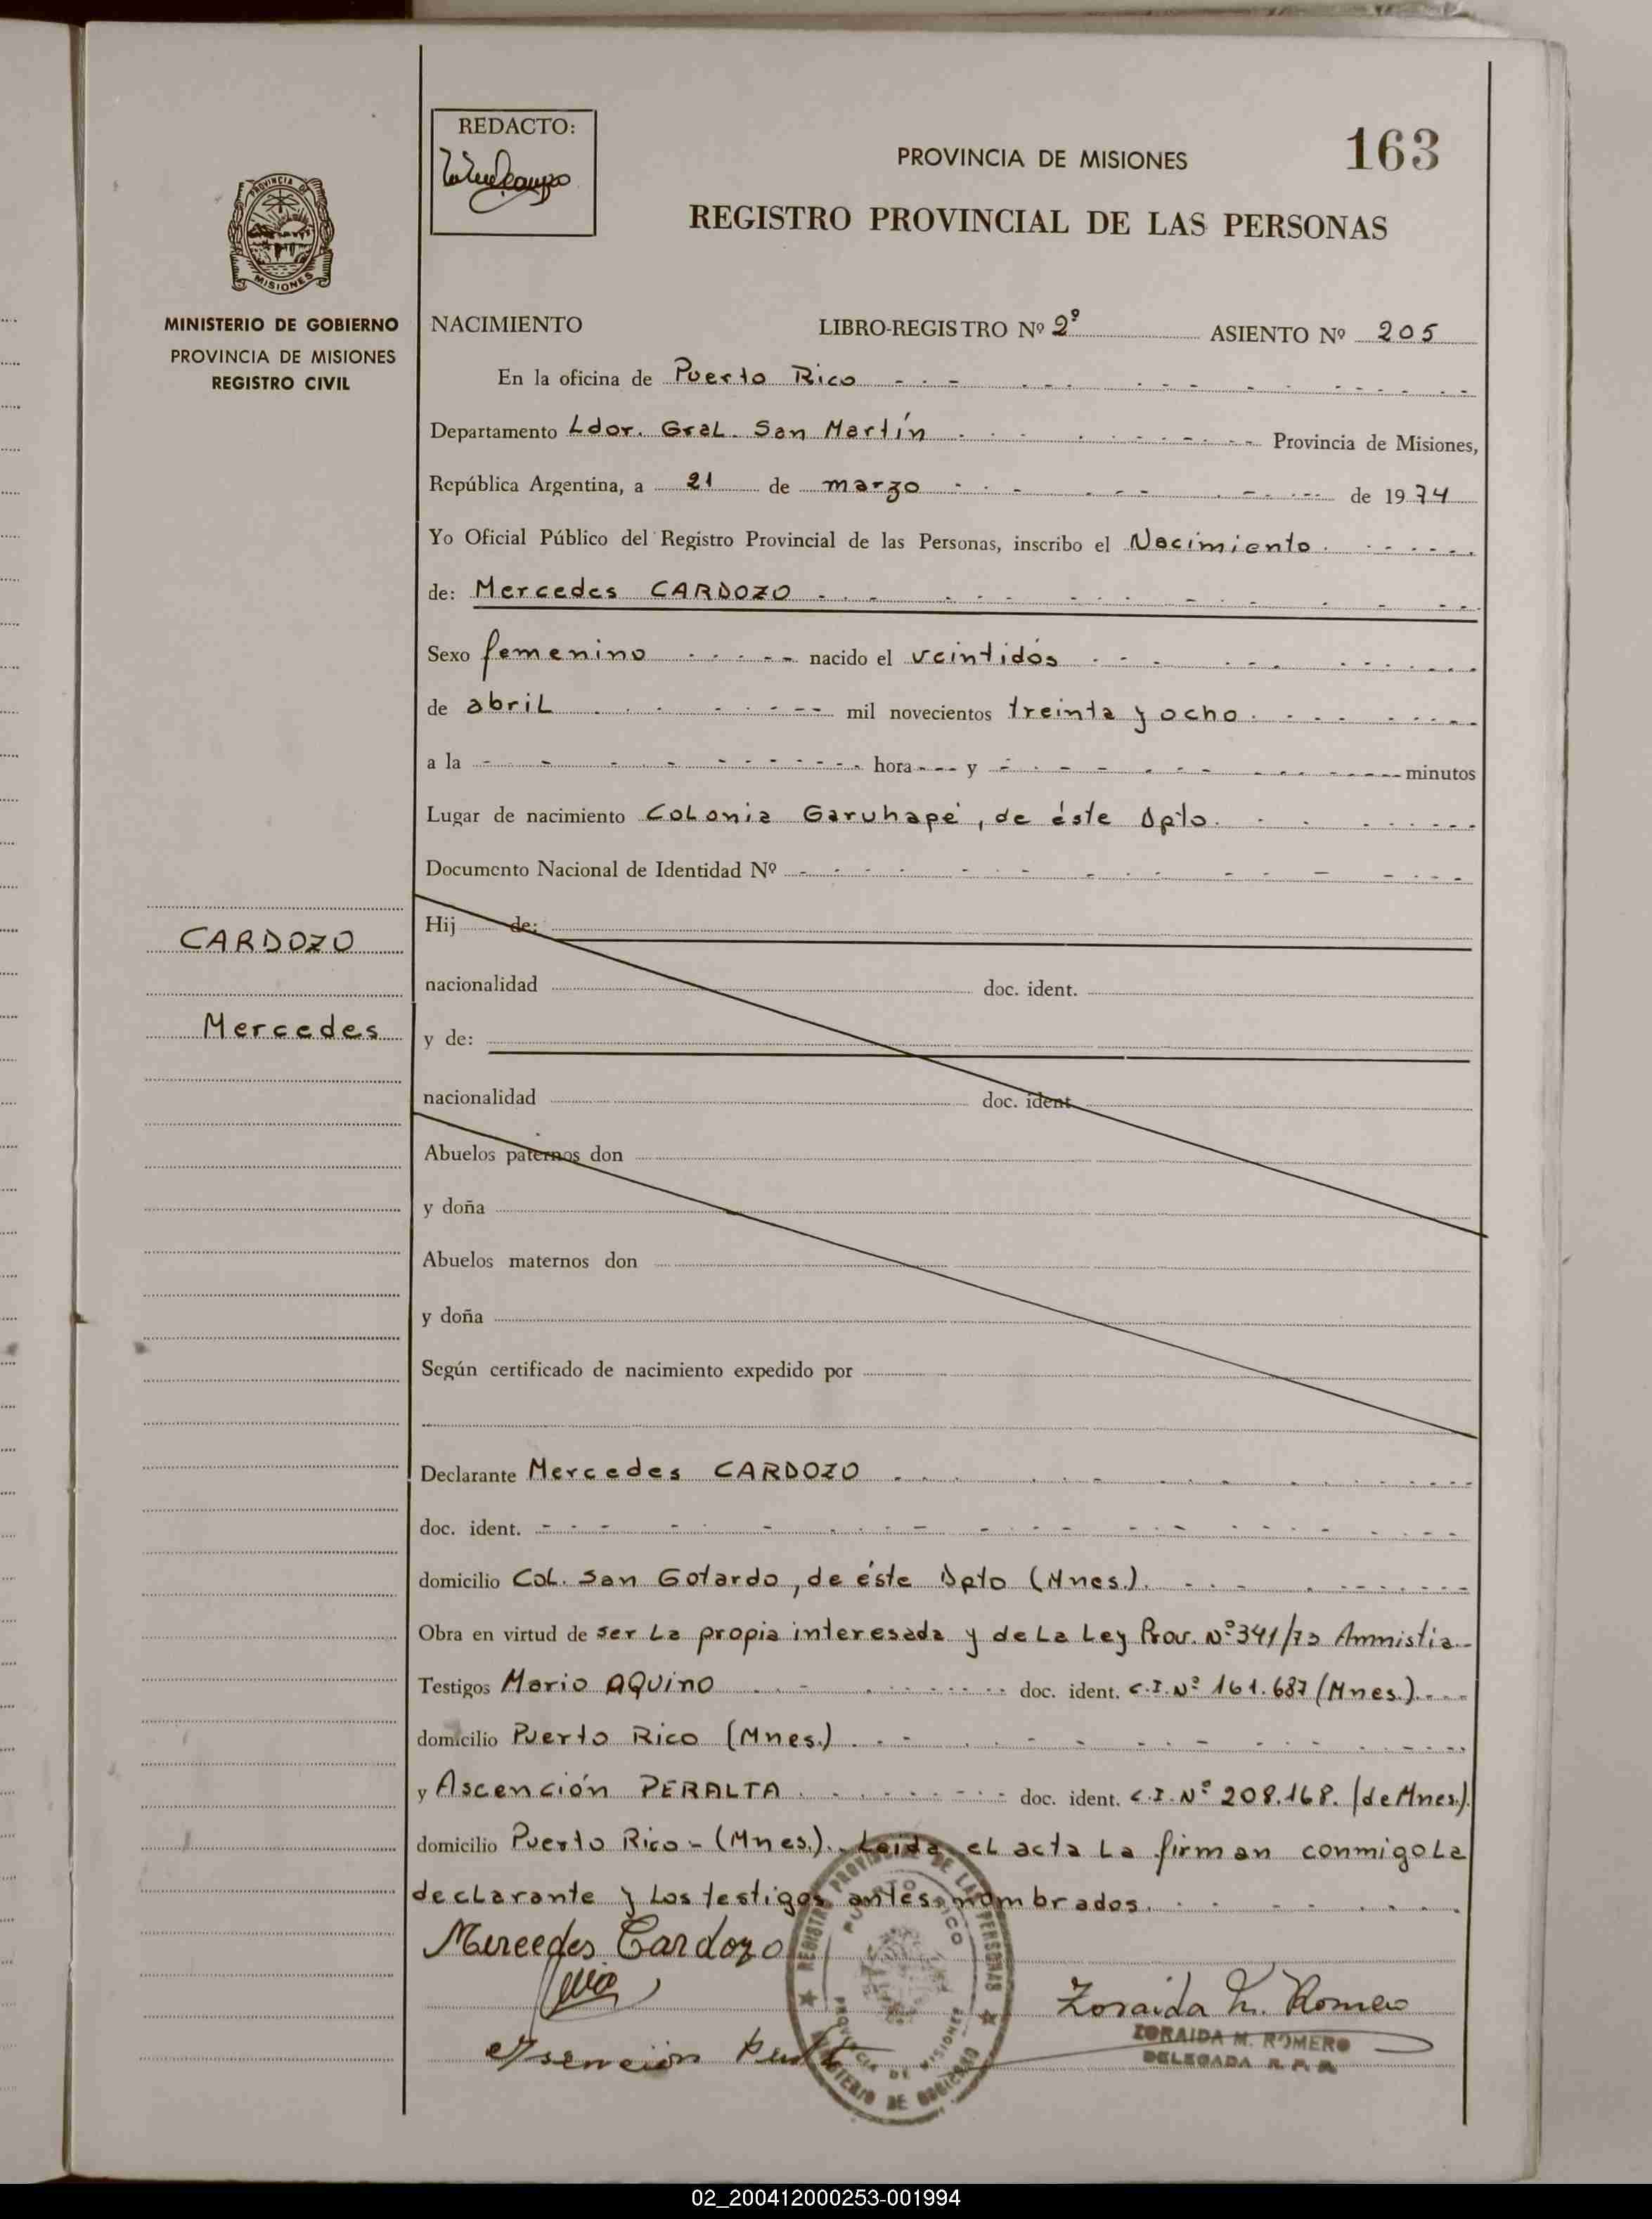 REDACTO:
PROVINCIA DE MISIONES
163
REGISTRO PROVINCIAL DE LAS PERSONAS
PROVINCIA DE
MISIONES
MINISTERIO DE GOBIERNO
PROVINCIA DE MISIONES
REGISTRO CIVIL
NACIMIENTO LIBRO-REGISTRO Nº 2º ASIENTO Nº 205
En la oficina de Puerto Rico
Departamento Ldor. Gral. San Martín Provincia de Misiones,
República Argentina, a 21 de marzo de 1974
Yo Oficial Público del Registro Provincial de las Personas, inscribo el Nacimiento
de: Mercedes CARDOZO
Sexo femenino nacido el veintidós
de abril mil novecientos treinta y ocho
a la hora y minutos
Lugar de nacimiento Colonia Garuhapé, de éste Dpto.
Documento Nacional de Identidad Nº
CARDOZO
Mercedes
Hij de:
nacionalidad doc. ident.
y de:
nacionalidad doc. ident.
Abuelos paternos don
y doña
Abuelos maternos don
y doña
Según certificado de nacimiento expedido por
Declarante Mercedes CARDOZO
doc. ident.
domicilio Col. San Gotardo, de éste Dpto (Mnes.).
Obra en virtud de ser La propia interesada y de La Ley Prov. Nº 341/73 Amnistia
Testigos Mario AQUINO doc. ident. C.I. Nº 161.687 (Mnes.).
domicilio Puerto Rico (Mnes.)
y Ascención PERALTA doc. ident. C.I. Nº 208.168. (de Mnes.).
domicilio Puerto Rico - (Mnes.). Leida el acta La firman conmigo La
declarante y Los testigos antes nombrados.
Mercedes Cardozo
REGISTRO PROVINCIAL DE LAS PERSONAS
PUERTO RICO
PROVINCIA DE MISIONES
MINISTERIO DE GOBIERNO
Zoraida M. Romero
ZORAIDA M. ROMERO
DELEGADA R. P. P.
Asención
02_200412000253-001994